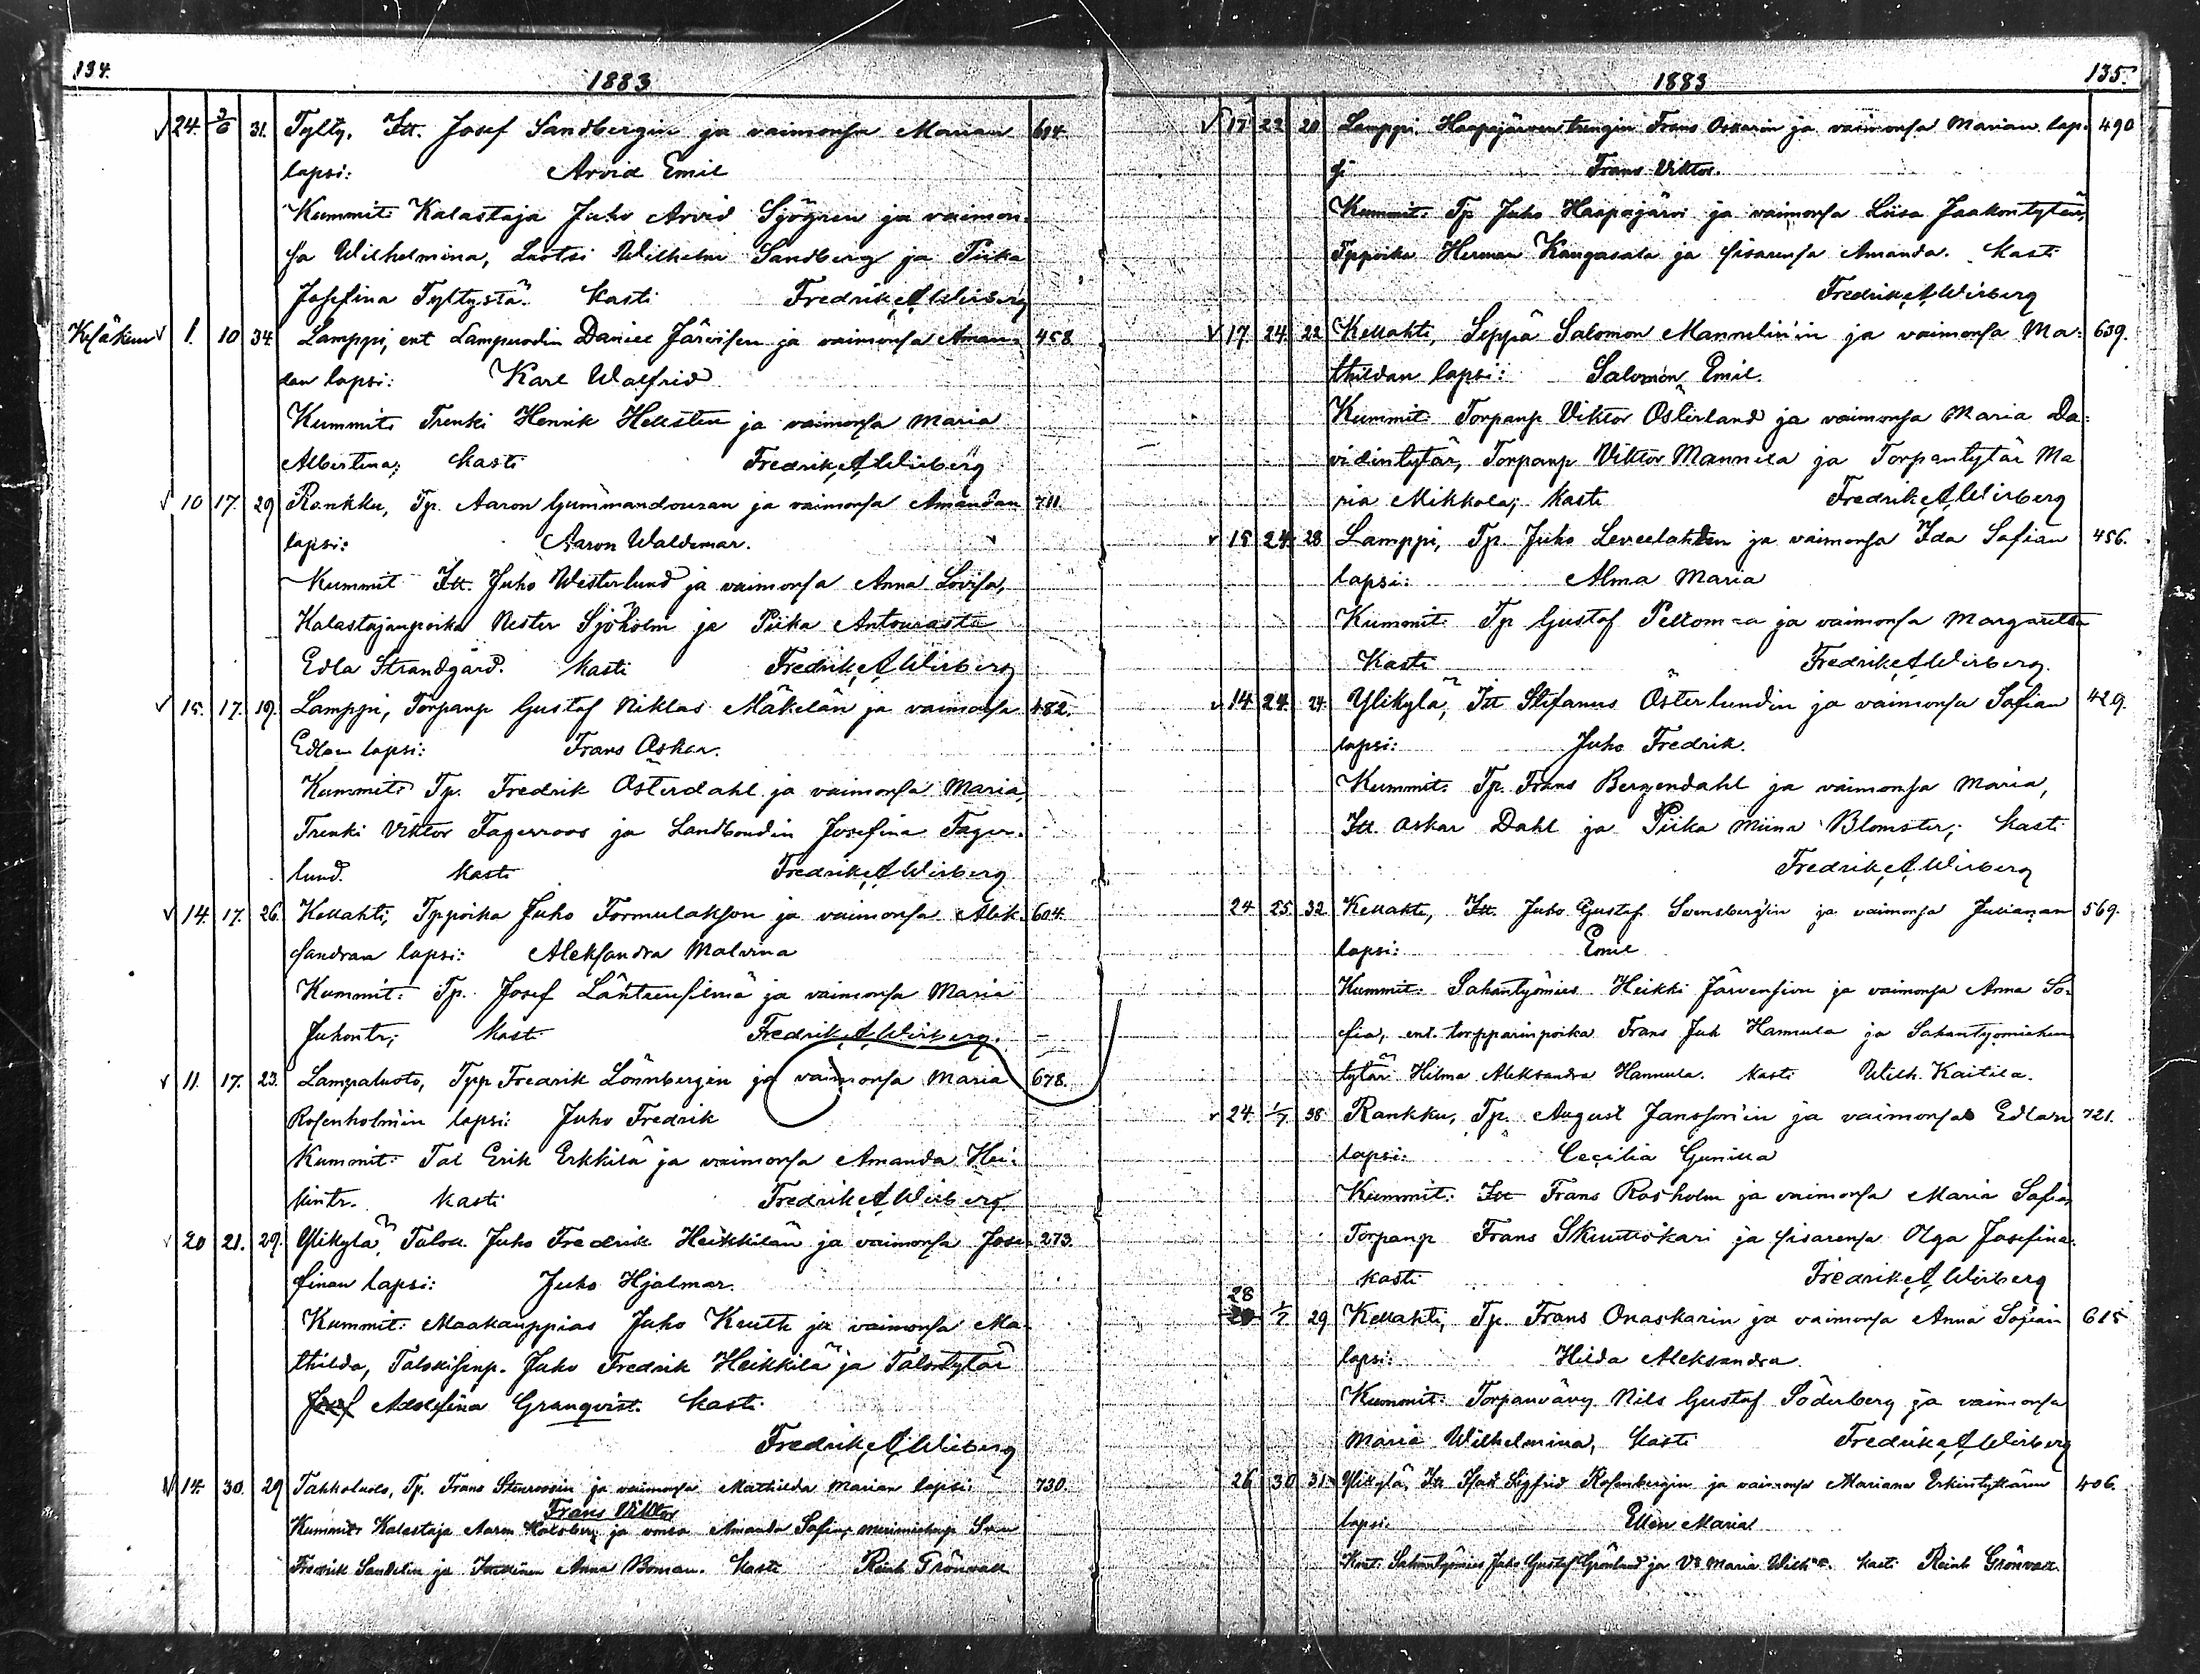 134.
1883
√ 24. 3/6 31. Tylty, Itt. Josef Sandbergin ja vaimonsa Marian 614.
lapsi: Arvid Emil
Kummit: Kalastaja Juho Arvid Sjögren ja vaimon-
sa Wilhelmina, Luotsi Wilhelm Sandberg ja Piika
Josefina Tyltystä. Kasti Fredrik A Wirberg
Kesäkuu √ 1. 10 34 Lamppi, ent Lampuodin Daniel Järvisen ja vaimonsa Aman- 458
dan lapsi: Karl Walfrid
Kummit: Trenki Henrik Hellsten ja vaimonsa Maria
Albertina; Kasti Fredrik A Wirberg
√ 10 17. 29 Rankku, Tp. Aaron ja vaimonsa Amandan 711.
lapsi: Aaron Waldemar.
Kummit Itt. Juho Westerlund ja vaimonsa Anna Lovisa,
Kalastajanpoika Nestor Sjöholm ja Piika
Edla Strandgård. Kasti Fredrik A Wirberg
√ 15. 17. 19. Lamppi, Torpanp Gustaf Niklas Mäkelän ja vaimonsa 482.
Edlan lapsi: Frans Oskar.
Kummit: Tp. Fredrik Österdahl ja vaimonsa Maria,
Trenki Viktor Fagerroos ja Josefina Fager-
lund. Kasti Fredrik A Wirberg
√ 14. 17. 26. Kellahti, Tppoika Juho ja vaimonsa Alek- 604.
sandran lapsi: Aleksandra Malvina
Kummit: Tp. Josef ja vaimonsa Maria
Juhontr; Kasti Fredrik A Wirberg.
√ 11. 17. 23. Lampaluoto, Tpp Fredrik Lönnbergin ja vaimonsa Maria 678.
Rosenholmin lapsi: Juho Fredrik
Kummit: Tal Erik Erkkilä ja vaimonsa Amanda Hei-
kintr. Kasti Fredrik A Wirberg
√ 20 21. 29. Ylikylä, Talok. Juho Fredrik Heikkilän ja vaimonsa Jose- 273.
finan lapsi: Juho Hjalmar.
Kummit: Maakauppias Juho Knuth ja vaimonsa Ma-
thilda, Talokisenp. Juho Fredrik Heikkilä ja Talontytär
Josef Adolfina Granqvist. Kasti
Fredrik A Wirberg
√ 14. 30. 29 Tahkoluoto, Tp. Frans Stenroosin ja vaimonsa Mathilda Marian lapsi: 730.
Frans Viktor
Kummit: Kalastaja Aaron ja vmsa Amanda Sofia,
Fredrik Sandelin ja Anna Boman. Kasti Reinh Grönvall
135.
1883
√ 17 22 20 Lamppi, Haapajärven trengin Frans Oskarin ja vaimonsa Marian lap- 490
si Frans Viktor.
Kummit: Tp Juho Haapajärvi ja vaimonsa Liisa Jaakontytär,
Tppoika Herman Kangasala ja sisarensa Amanda. Kasti
Fredrik A Wirberg
√ 17 24 22 Kellahti, Seppä Salomon Mannelin'in ja vaimonsa Ma- 639.
thildan lapsi: Salomon Emil.
Kummit: Torpanp Viktor Österland ja vaimonsa Maria Da-
vidintytär, Torpanp Viktor Mannila ja Torpantytär Ma
ria Mikkola; Kasti Fredrik A Wirberg
√ 15 24 28 Lamppi, Tp. Juho Leveelahden ja vaimonsa Ida Sofian 456.
lapsi: Alma Maria
Kummit: Tp Gustaf Peltomaa ja vaimonsa Margaretta
Kasti Fredrik A Wirberg.
√ 14 24. 24 Ylikylä, Itt Stefanus Österlundin ja vaimonsa Sofian 429.
lapsi: Juho Fredrik.
Kummit: Tp. Frans Bergendahl ja vaimonsa Maria,
Itt. Oskar Dahl ja Piika Miina Blomster; Kasti
Fredrik A Wirberg
24 25. 32 Kellahti, Itt. Juho Gustaf Svensbergin ja vaimonsa Julianan 569.
lapsi: Emil
Kummit: Sahantyömies Heikki Järvensivu ja vaimonsa Anna So-
fia, ent. torpparinpoika Frans Juh Hannula ja Sahantyömiehen
tytär Hilma Aleksandra Hannula. Kasti Wilh. Kaitila.
√ 24. 1/7 38 Rankku, Tp. August Jansson'in ja vaimonsa Edlan 721.
lapsi: Cecilia Gunilla
Kummit: Itt Frans Rosholm ja vaimonsa Maria Sofia,
Torpanp Frans Skuutiskari ja sisarensa Olga Josefina.
Kasti Fredrik A Wirberg
28 1/7 29 Kellahti, Tp. Frans Onaskarin ja vaimonsa Anna Sofian 615
lapsi: Hilda Aleksandra.
Kummit: Torpanvävy Nils Gustaf Söderberg ja vaimonsa
Maria Wilhelmina, Kasti Fredrik A Wirberg
26 30 31. Ylikylä, Itt Isak Sigfrid Rosenbergin ja vaimonsa Mariana Erkintyttären 406.
lapsi: Ellen Maria
Kmt: Sahantyömies Juho Gustaf Grönlund ja Vo Maria Wilh:a. Kasti Reinh Grönvall.